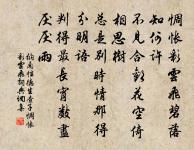 惆悵彩雲飛碧落
知何許
不見合歡花空倚
相思樹
總是別時情那得
分明語
判得最長宵數盡
厭厭雨
納蘭性德生查子惆悵
彩雲飛詞典網